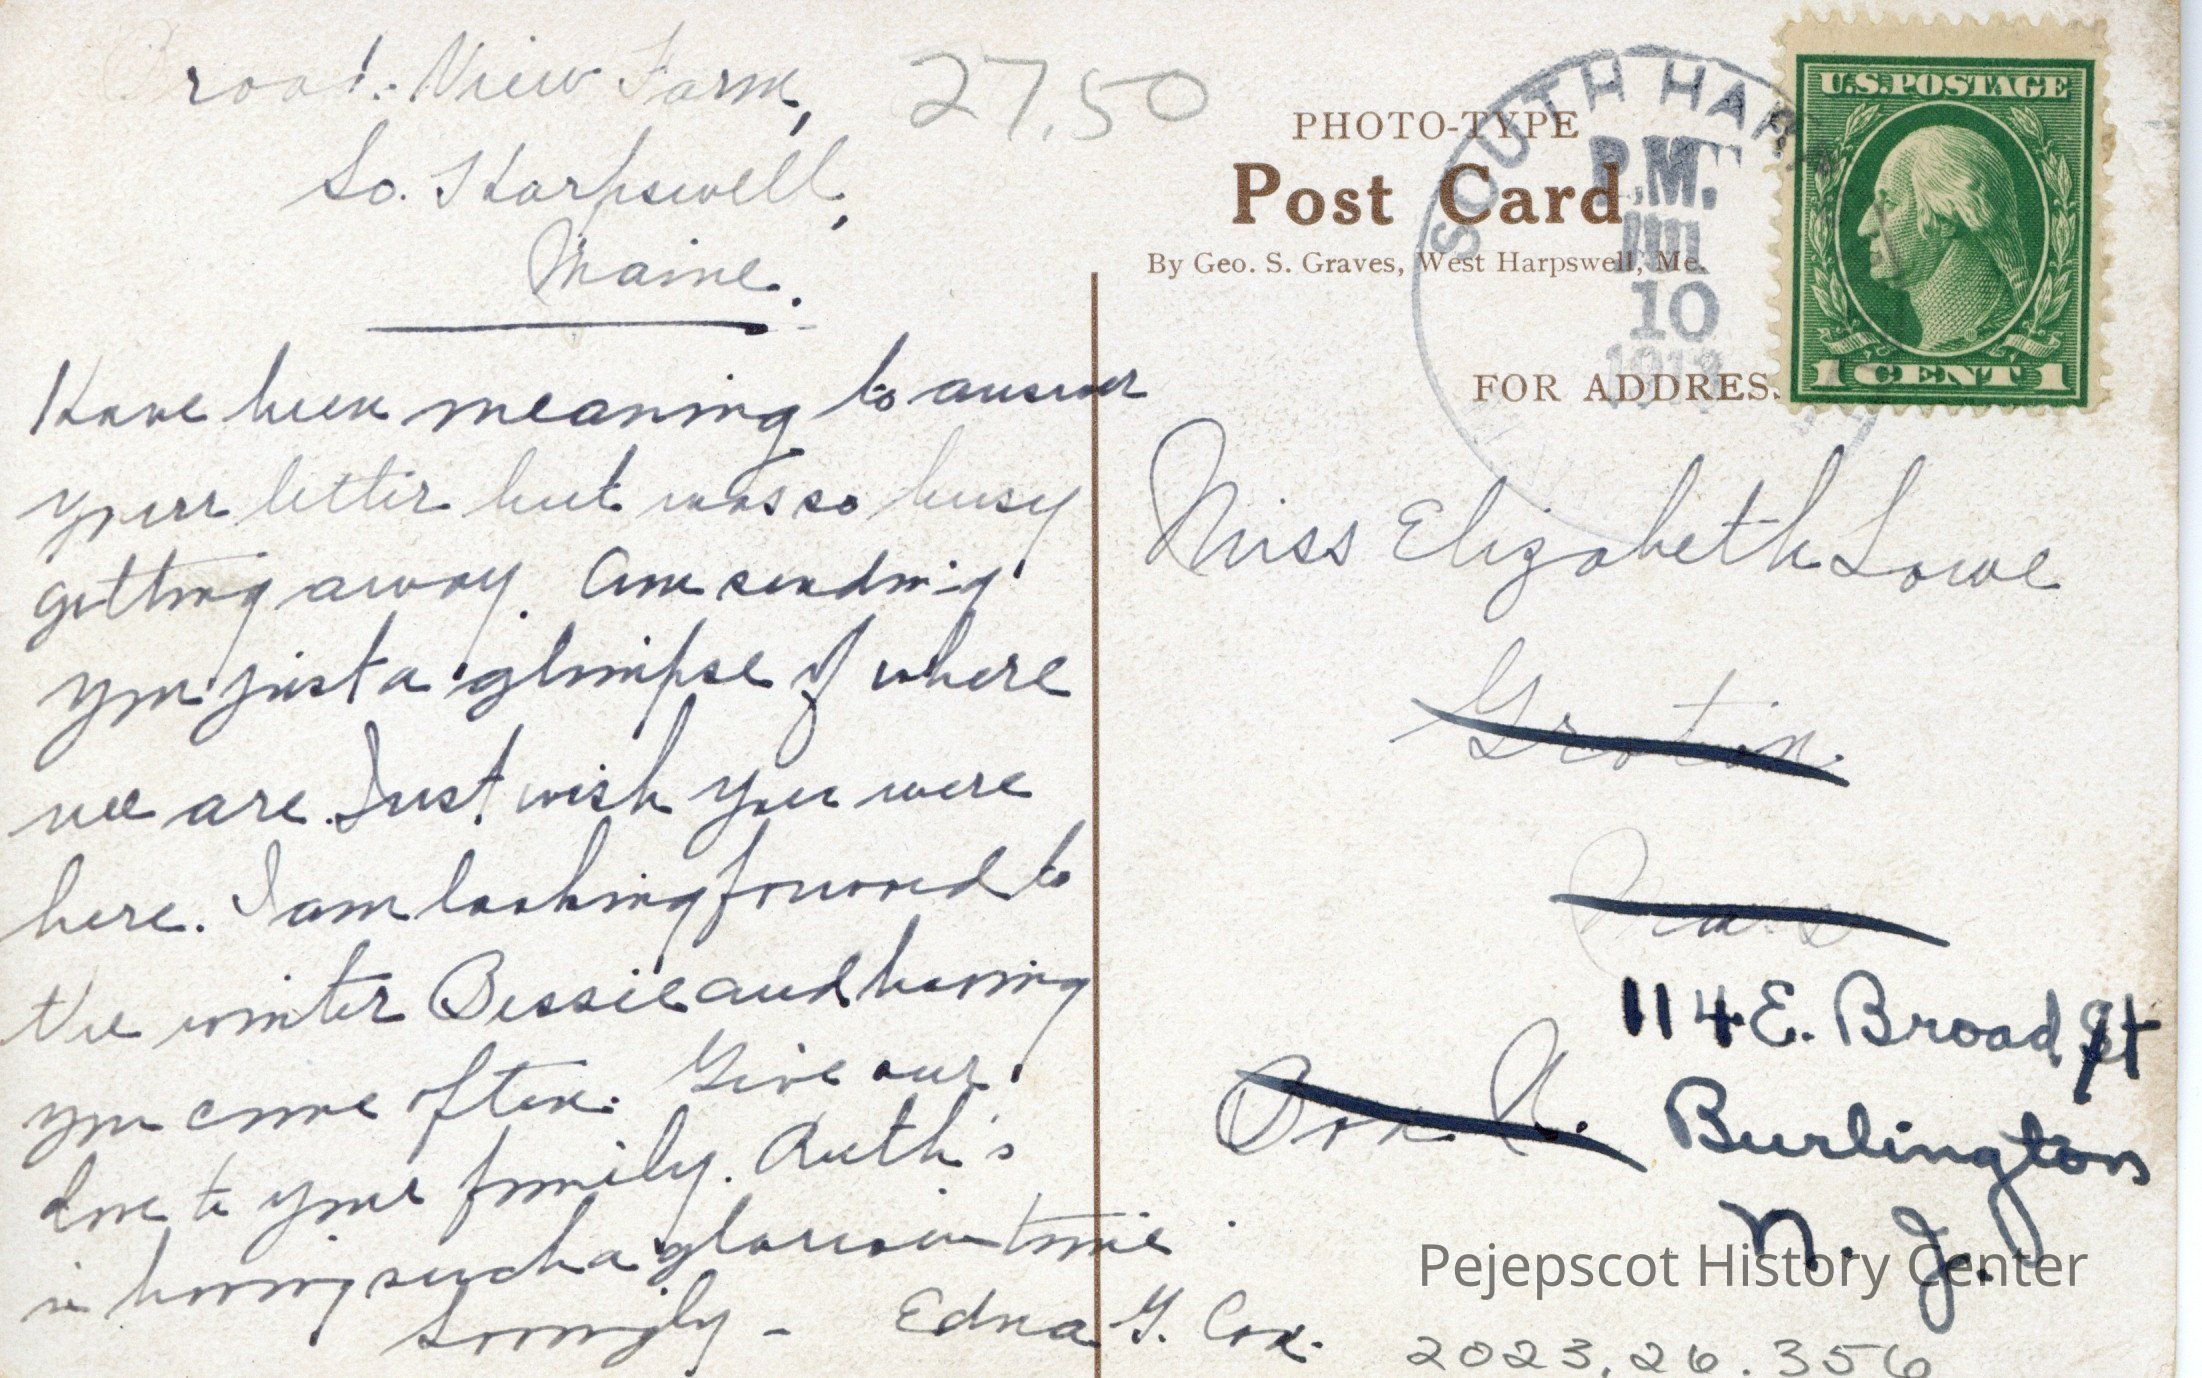 Broad View Farm,
So. Harpswell,
Maine.
27.50
Have been meaning to answer
your letter but was so busy
getting away. Am sending
you just a glimpse of where
we are. Just wish you were
here. I am looking forward to
the winter Bessie and having
you come often. Give our
love to your family. Ruth's
having such a glorious time
Lovingly - Edna G. Cox.
PHOTO-TYPE
Post Card
By Geo. S. Graves, West Harpswell, Me.
FOR ADDRESS
SOUTH HARP
P.M.
JUL
10
U.S. POSTAGE
1 CENT 1
Miss Elizabeth Lowe
Groton
Mass
Box A.
114 E. Broad St
Burlington
N. J.
Pejepscot History Center
2023.26.356